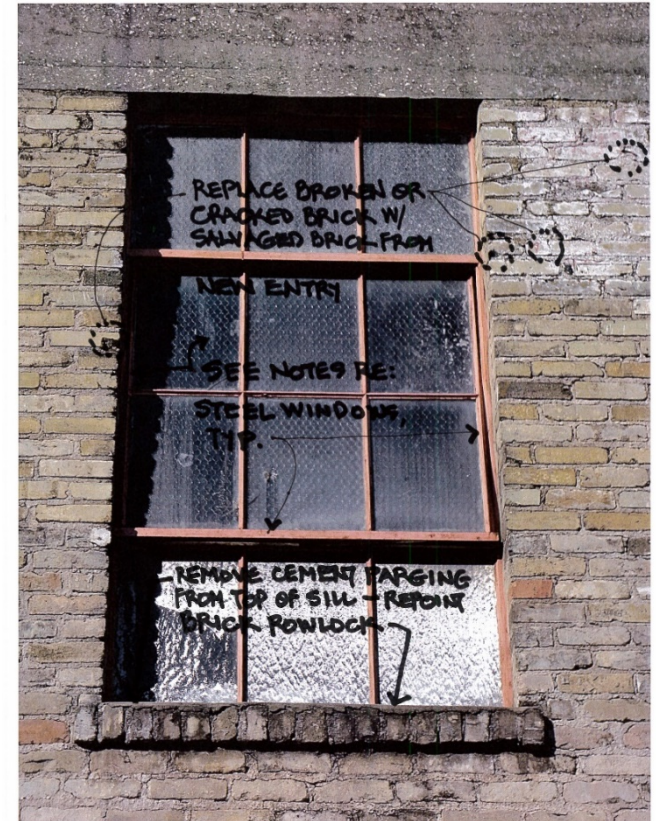 REPLACE BROKEN OR
CRACKED BRICK W/
SALVAGED BRICK FROM
NEW ENTRY
SEE NOTES RE:
STEEL WINDOWS,
TYP.
REMOVE CEMENT PARGING
FROM TOP OF SILL - REPOINT
BRICK ROWLOCK